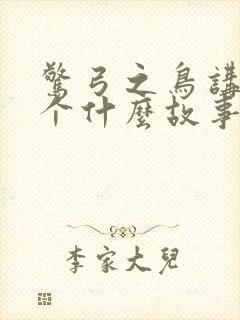 驚弓之鳥講
个什麼故事
李家大兒